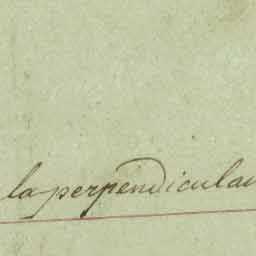 la perpendicular